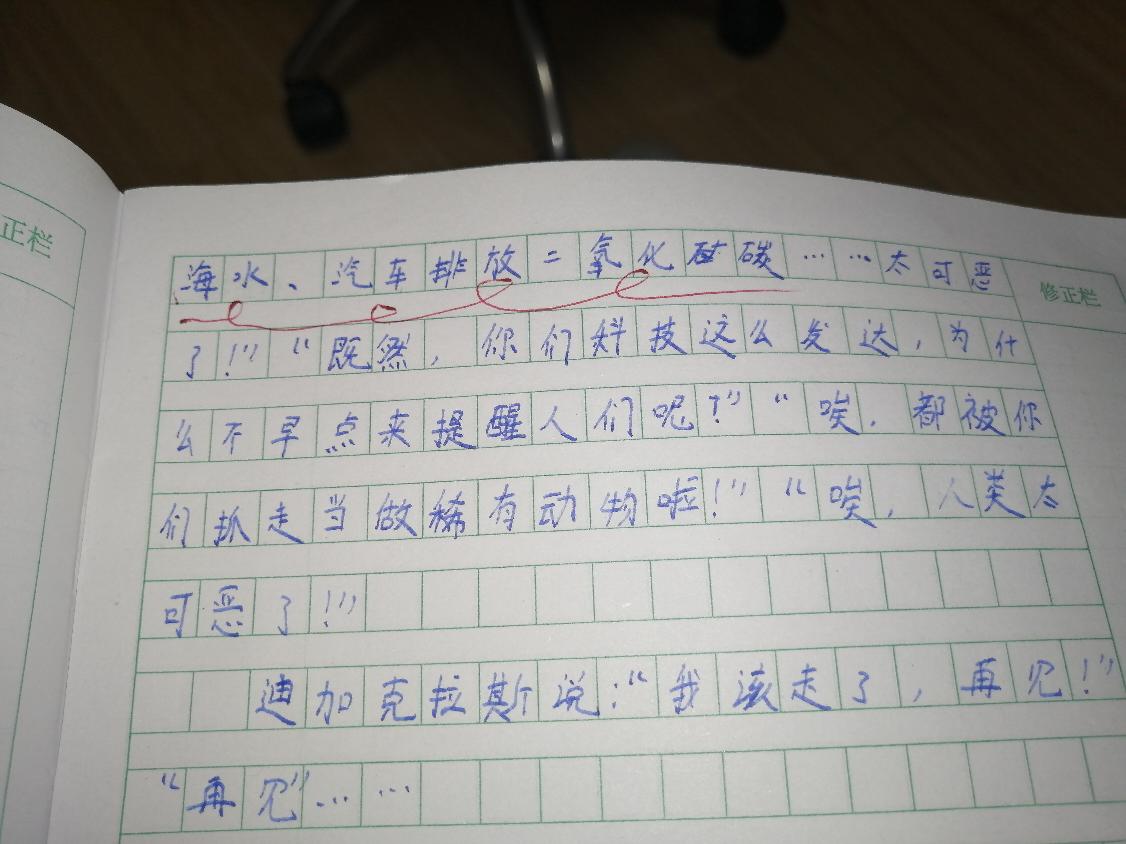 正栏
海水、汽车排放二氧化碳……太可恶
修正栏
了!”“既然，你们科技这么发达，为什
么不早点来提醒人们呢?”“唉，都被你
们抓走当做稀有动物啦!”“唉，人类太
可恶了!”
迪加克拉斯说:“我该走了，再见!”
“再见”……